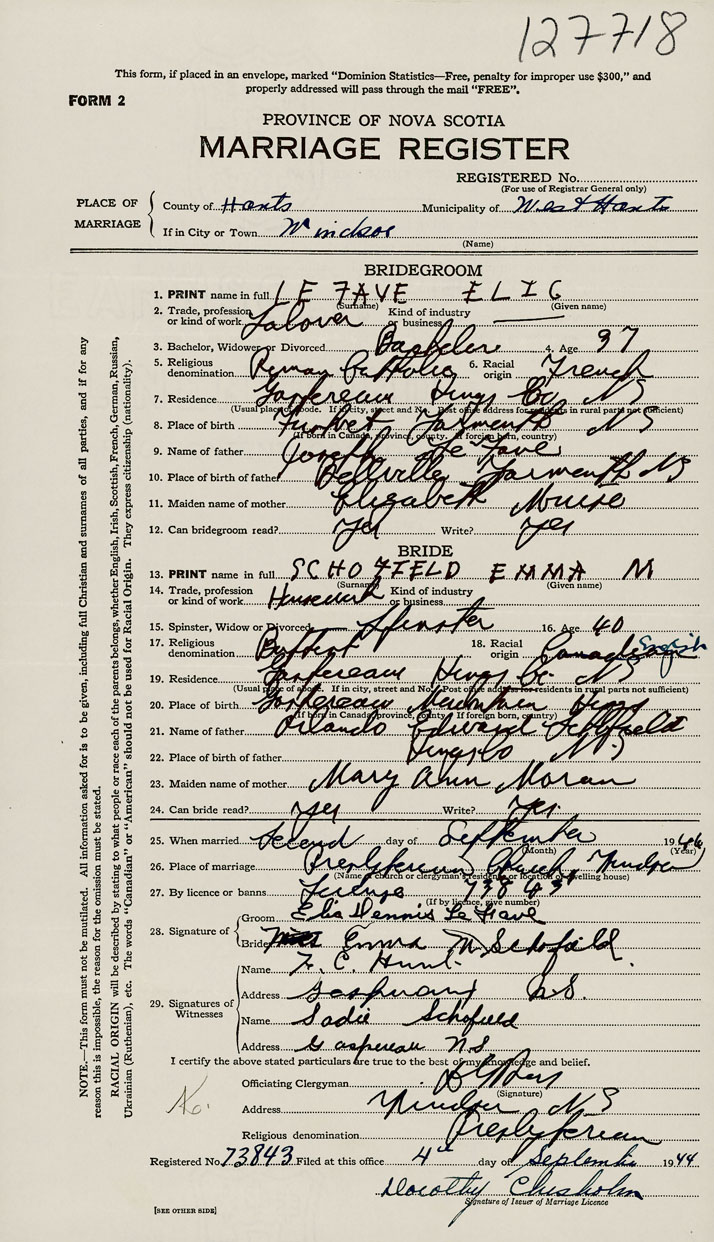 127718
This form, if placed in an envelope, marked "Dominion Statistics—Free, penalty for improper use $300," and
properly addressed will pass through the mail "FREE".
FORM 2
PROVINCE OF NOVA SCOTIA
MARRIAGE REGISTER
REGISTERED No.
(For use of Registrar General only)
PLACE OF MARRIAGE
County of Hants Municipality of West Hants
If in City or Town Windsor
(Name)
BRIDEGROOM
1. PRINT name in full LE FAVE ELIG
(Surname) (Given name)
2. Trade, profession or kind of work Labourer Kind of industry or business
3. Bachelor, Widower or Divorced Bachelor 4. Age 37
5. Religious denomination Roman Catholic 6. Racial origin French
7. Residence Gaspereau Kings Co NS
(Usual place of abode. If in city, street and No. Post office address for residents in rural parts not sufficient)
8. Place of birth Yarmouth NS
(If born in Canada, province, county. If foreign born, country)
9. Name of father Joseph Le Fave
10. Place of birth of father Bellville Yarmouth NS
11. Maiden name of mother Elizabeth Muise
12. Can bridegroom read? Yes Write? Yes
BRIDE
13. PRINT name in full SCHOFIELD EMMA M
(Surname) (Given name)
14. Trade, profession or kind of work Housework Kind of industry or business
15. Spinster, Widow or Divorced Spinster 16. Age 40
17. Religious denomination Baptist 18. Racial origin Canadian English
19. Residence Gaspereau Kings Co. NS
(Usual place of abode. If in city, street and No. Post office address for residents in rural parts not sufficient)
20. Place of birth Gaspereau Mountain Kings
(If born in Canada, province, county. If foreign born, country)
21. Name of father Orlando Edward Schofield
22. Place of birth of father Kings Co NS
23. Maiden name of mother Mary Ann Moran
24. Can bride read? Yes Write? Yes.
25. When married Second day of September 1944
(Month) (Year)
26. Place of marriage Presbyterian Church Windsor
(Name church or clergyman's residence or location of dwelling house)
27. By licence or banns License 73843
(If by licence, give number)
28. Signature of
Groom Elia Dennis Le Fave
Bride Emma M Schofield.
29. Signatures of Witnesses
Name F. C. Hunt.
Address Gaspereau N.S.
Name Sadie Schofield
Address Gaspereau N.S
I certify the above stated particulars are true to the best of my knowledge and belief.
Officiating Clergyman
(Signature)
Address Windsor N S
Religious denomination Presbyterian
Registered No. 73843 Filed at this office 4th day of September 1944
Dorothy Chisholm
Signature of Issuer of Marriage Licence
[SEE OTHER SIDE]
NOTE.—This form must not be mutilated. All information asked for is to be given, including full Christian and surnames of all parties, and if for any
reason this is impossible, the reason for the omission must be stated.
RACIAL ORIGIN will be described by stating to what people or race each of the parents belongs, whether English, Irish, Scottish, French, German, Russian,
Ukrainian (Ruthenian), etc. The words "Canadian" or "American" should not be used for Racial Origin. They express citizenship (nationality).